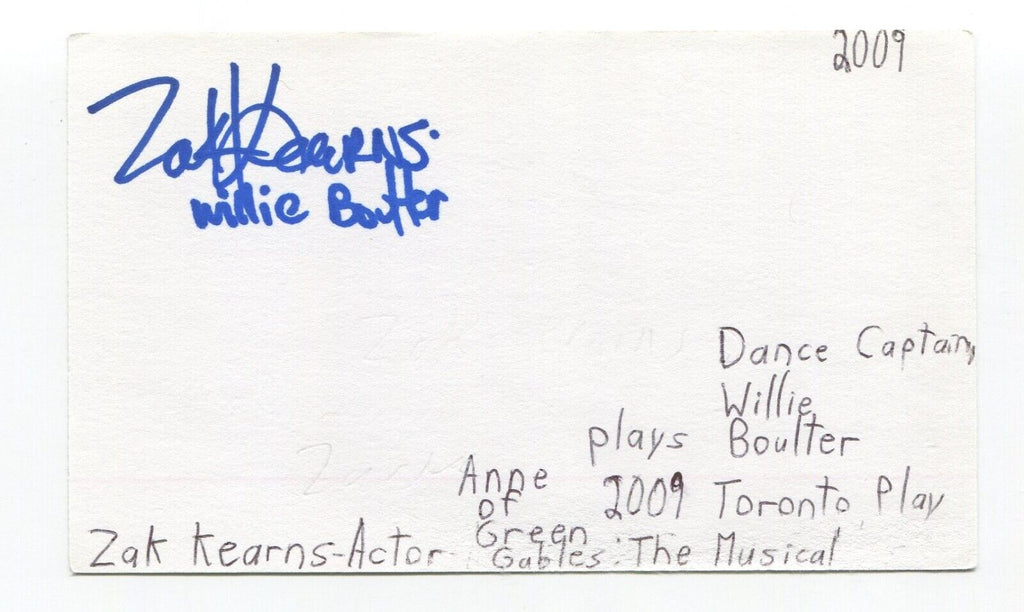 2009
Zak Kearns.
Willie Boulter
Dance Captain,
Willie
plays Boulter
Anne
of 2009 Toronto Play
Green
Zak Kearns-Actor Gables: The Musical